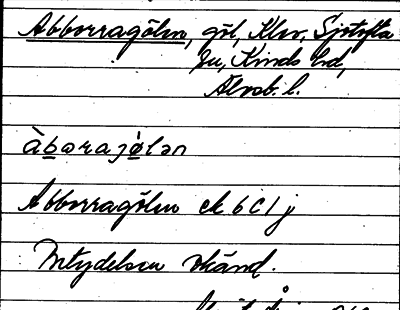 Abborragölen, göl, Klev, Sjötofta
su, Kinds hd,
Älvsb. l.
àbɷrajø̀lən
Abborragölen ek 6C1j
Betydelsen okänd.